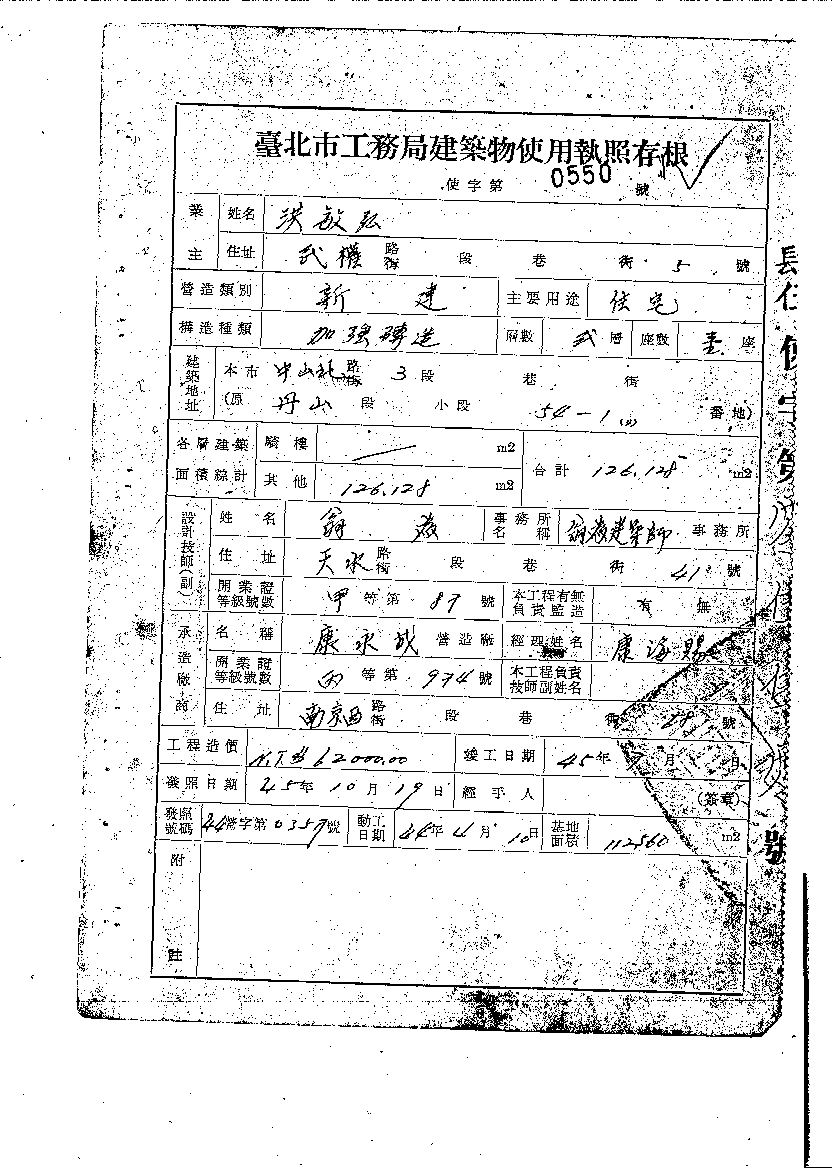 臺北市工務局建築物使用執照存根
使字第 0550 號
業主 姓名 洪敏弘
住址 武權 路街 段 巷 街 5 號
營造類別 新建 主要用途 住宅
構造種類 加強磚造 層數 弍層 座數 壹座
建築地址 本市 中山北 路街 3段 巷 街
(原 丹山 段 小段 54-1 番地)
各層建築面積綜計 騎樓 m2
其他 126,128 m2 合計 126,128 m2
設計技師(副) 姓名 翁 事務所名稱 建築師 事務所
住址 天水 路街 段 巷 街 41 號
開業證等級號數 甲等第 89 號 本工程有無負責監造 有 無
承造廠商 名稱 康永成 營造廠 經理姓名 康海賜
開業證等級號數 丙等第 974 號 本工程負責技師副姓名
住址 南京西 路街 段 巷 街 號
工程造價 N.T.$ 62000.00 竣工日期 45年 月 日
發照日期 45年10月19日 經手人 (簽章)
發照號碼 44營字第0357號 動工日期 44年4月10日 基地面積 112560 m2
附註